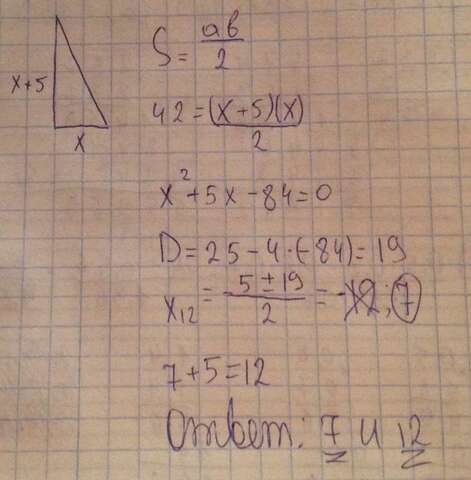 x+5
x
S = ab/2
42 = (x+5)(x)/2
x²+5x-84=0
D=25-4·(-84)=19
x₁₂ = -5±19/2 = -12; 7
7+5=12
Ответ: 7 и 12